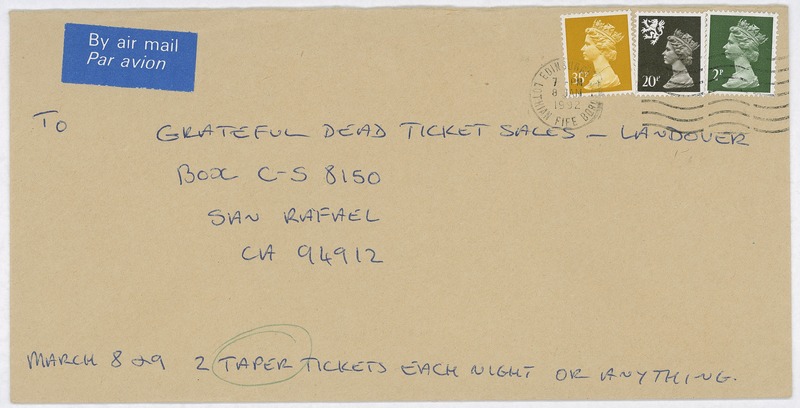 By air mail
Par avion
35P
20P
2P
EDINBURGH
7
8 JAN
1992
LOTHIAN FIFE BORDERS
TO
GRATEFUL DEAD TICKET SALES – LANDOVER
BOX C-S 8150
SAN RAFAEL
CA 94912
MARCH 8 & 9 2 TAPER TICKETS EACH NIGHT OR ANYTHING.